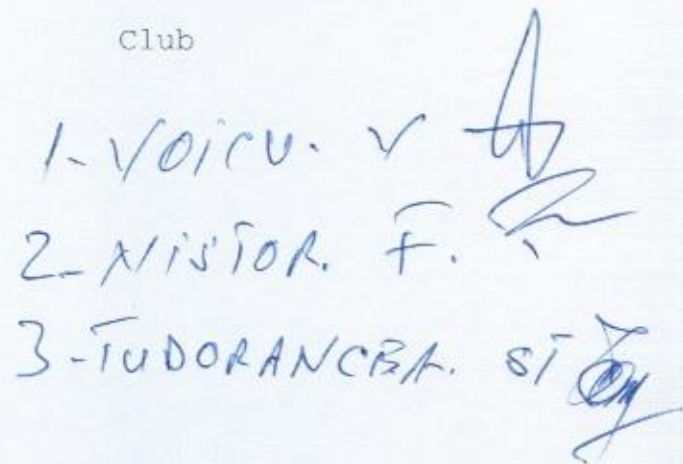 Club
1. VOICU. V
2. NISTOR. F.
3-TUDORANCEA. ST